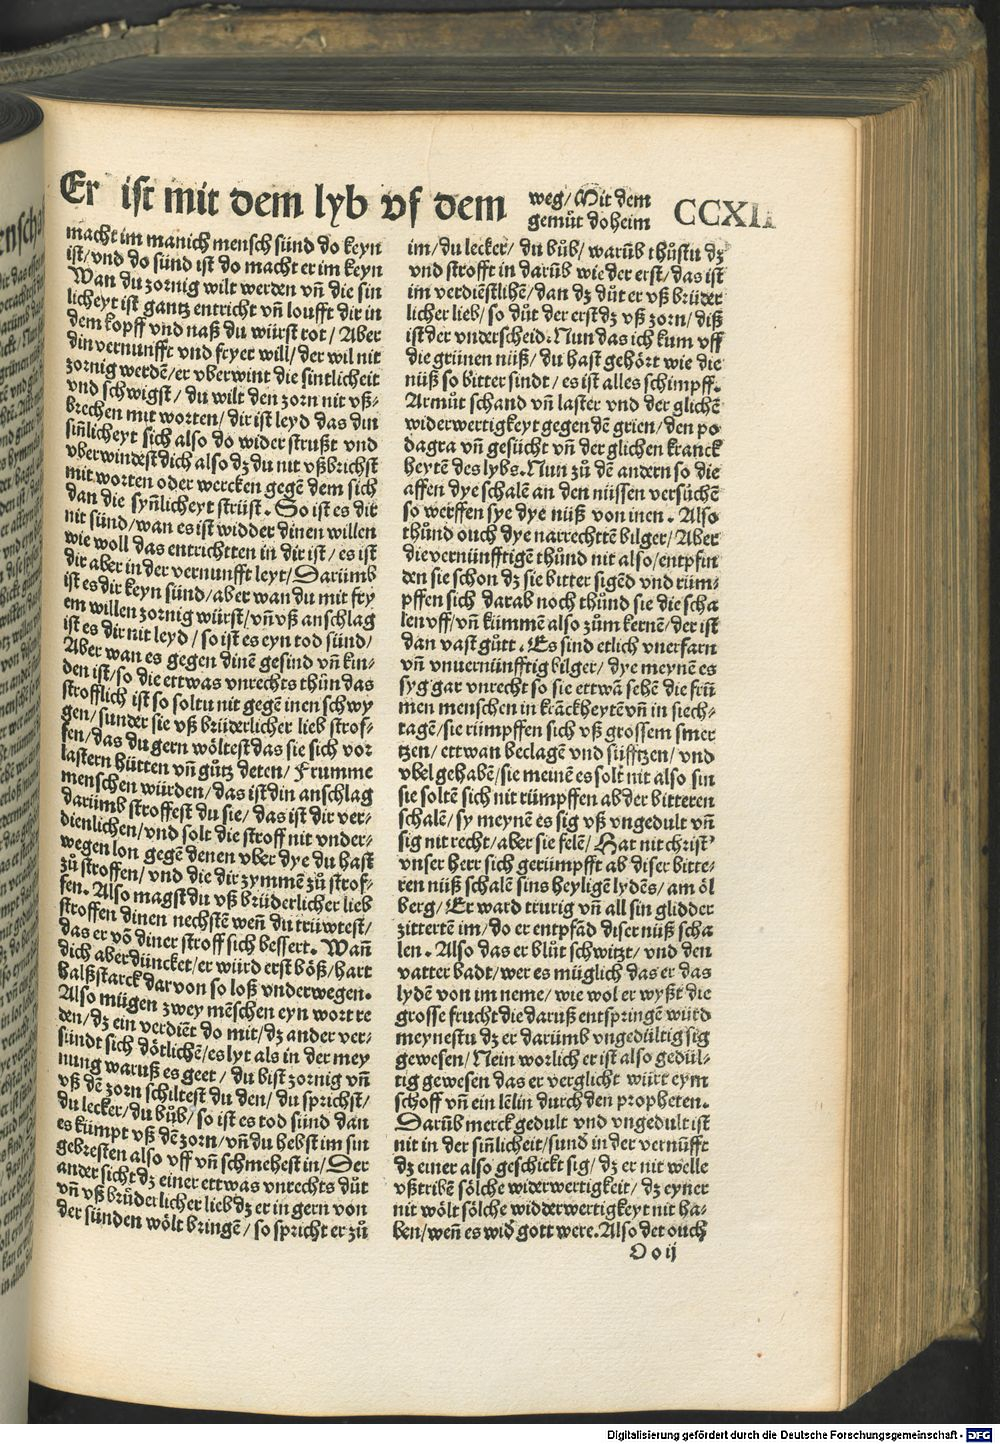 Er ist mit dem lyb vf dem weg/ Mit dem gemůt doheim CCXII
macht im manich mensch sünd do keyn
ist/vnd do sünd ist do macht er im keyn
Wan du zornig wilt werden vñ die sin
licheyt ist gantz entricht vñ loufft dir in
dem kopff vnd naß du würst rot/ Aber
din vernunfft vnd fryer will/ der wil nit
zornig werdē/er vberwint die sintlicheit
vnd schwigst/ du wilt den zorn nit vß-
brechen mit worten/ dir ist leyd das din
siñlicheyt sich also do wider strußt vnd
vberwindest dich also dz du nit vßbrichst
mit worten oder wercken gegē dem sich
dan die syñlicheyt strüst. So ist es dir
nit sünd/wan es ist widder dinen willen
wie woll das entrichtten in dir ist/ es ist
dir aber in der vernunfft leyt/ Darümb
ist es dir keyn sünd/aber wan du mit fry
em willen zornig würst/vñ vß anschlag
ist es dir nit leyd/ so ist es eyn tod sünd/
Aber wan es gegen dinē gesind vñ kin-
den ist/so die ettwas vnrechts thůn das
strofflich ist so soltu nit gegē inen schwy
gen/ sunder sie vß brüderlicher lieb strof-
fen/das du gern wöltest das sie sich vor
lastern hütten vñ gůtz deten/ Frumme
menschen würden/das ist din anschlag
darümb stroffest du sie/ das ist dir ver-
dienlichen/vnd solt die stroff nit vnder-
wegen lon gegē denen vber dye du hast
zů stroffen/vnd die dir zymmē zů strof-
fen. Also magst du vß brüderlicher lieb
stroffen dinen nechstē weñ du trüwtest/
das er võ diner stroff sich bessert. Wañ
dich aber düncket/er würd erst böß/hart
halßstarck darvon so loß vnderwegen.
Also mügen zwey mēschen eyn wort re
den/ dz ein verdiēt do mit/dz ander ver-
sündt sich dötlichē/es lyt als in der mey
nung waruß es geet/ du bist zornig vñ
vß dē zorn schiltest du den/ du sprichst/
du lecker/du büb/ so ist es tod sünd dan
es kumpt vß dē zorn/vñ du hebst im sin
gebresten also vff vñ schmehest in/ Der
ander sicht dz einer ettwas vnrechts důt
vñ vß brüderlicher lieb dz er in gern von
der sünden wölt bringē/ so spricht er zů
im/du lecker/ du büb/ warüb thůstu dz
vnd strofft in darüb wie der erst/das ist
im verdiēstlihē/dan dz důt er vß brüder
licher lieb/ so důt der erst dz vß zorn/ diß
ist der vnderscheid: Nun das ich kum vff
die grünen nüß/ du hast gehört wie die
nüß so bitter sindt/ es ist alles schimpff.
Armůt schand vñ laster vnd der glichē
widerwertigkeyt gegen dē grien/den po
dagra vñ gesücht vñ der glichen kranck
heytē des lybs. Nun zů dē andern so die
affen dye schalē an den nüssen versůchē
so werffen sye dye nüß von inen. Also
thůnd ouch dye narrechtē bilger/ Aber
die vernünfftigē thůnd nit also/entpfin
den sie schon dz sie bitter sigēd vnd rüm-
pffen sich darab noch thůnd sie die scha
len vff/vñ kümmē also zům kernē/der ist
dan vast gůtt. Es sind etlich vnerfarn
vñ vnuernünfftig bilger/ dye meynē es
syg gar vnrecht so sie ettwā sehē die frü
men menschen in krāckheytē vñ in siech-
tagē/sie rümpffen sich vß grossem smer
tzen/ ettwan beclagē vnd süfftzen/ vnd
vbel gehabē/sie meinē es solt nit also sin
sie soltē sich nit rümpffen ab der bitteren
schalē/ sy meynē es sig vß vngedult vñ
sig nit recht/aber sie felē/ Hat nit christ'
vnser herr sich gerümpfft ab diser bitte-
ren nüß schalē sins heyligē lydēs/am öl
berg/ Er ward trurig vñ all sin glidder
zittertē im/do er entpfād diser nüß scha
len. Also das er blůt schwitzt/ vnd den
vatter badt/wer es müglich das er das
lydē von im neme/ wie wol er wyßt die
grosse frucht die daruß entspringē würd
meynestu dz er darümb vngedültig sig
gewesen/ Nein worlich er ist also gedül-
tig gewesen das er verglicht würt eym
schoff vñ ein lēlin durch den propheten.
Darüb merck gedult vnd vngedult ist
nit in der siñlicheit/sund in der vernüfft
dz einer also geschickt sig/dz er nit welle
vßtribē sölche widerwertigkeit/ dz eyner
nit wölt sölche widderwertigkeyt nit ha-
ben/weñ es wid gott were. Also det ouch
Oo ij
Digitalisierung gefördert durch die Deutsche Forschungsgemeinschaft - DFG